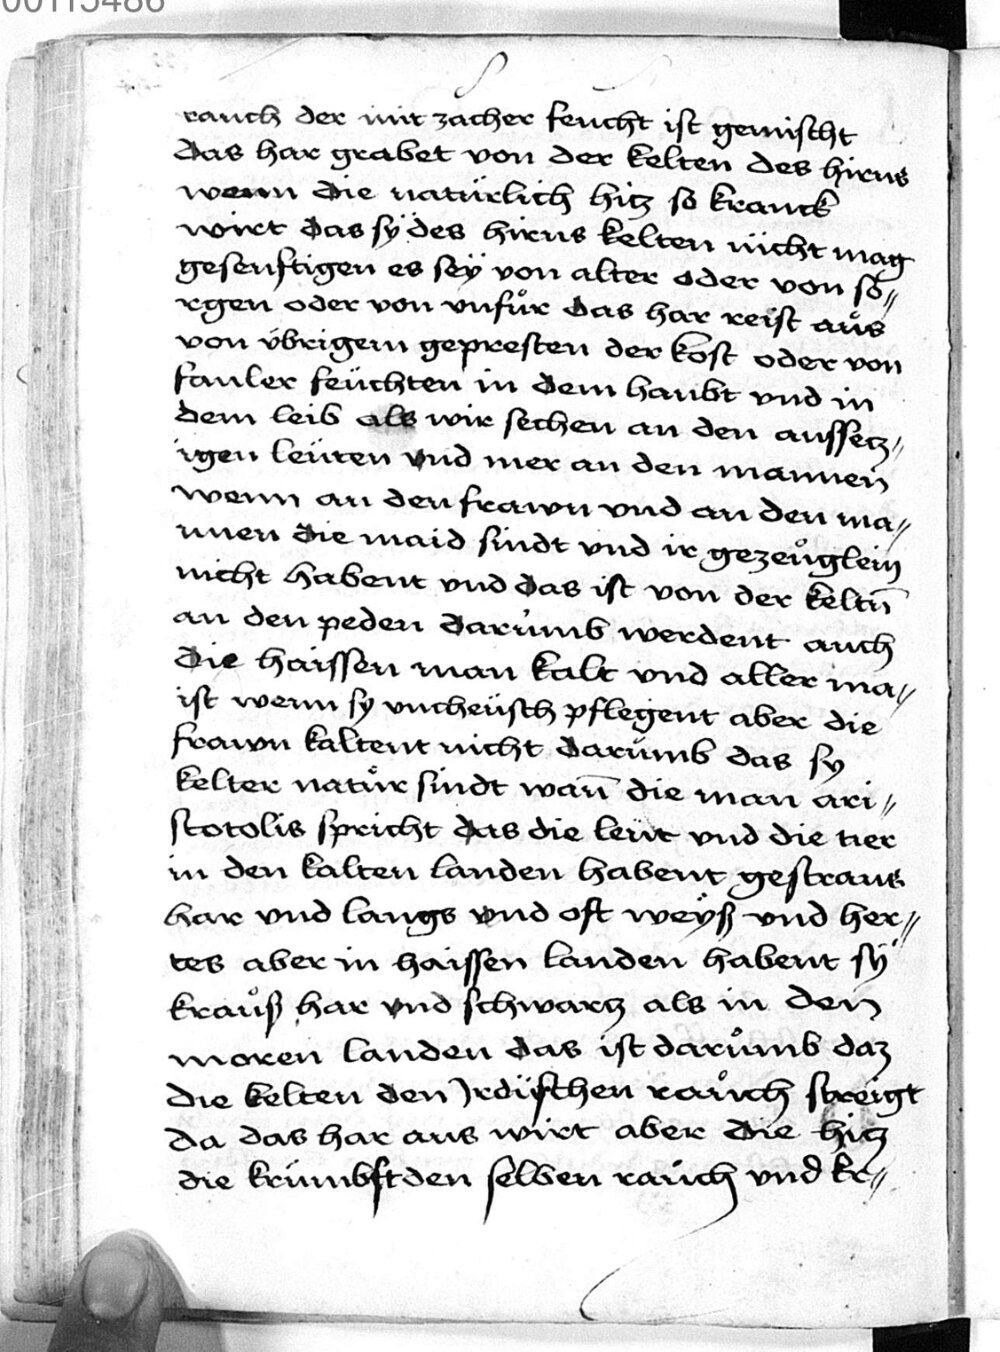 00115486
rauch der mit zacher feucht ist gemischt
das har grabet von der kelten des hirns
wenn die natürlich hitz so kranck
wirt das sÿ des hirns kelten nicht mag
gesenftigen es seÿ von alter oder von so〃
rgen oder von vnfůr das har reist aůs
von übrigem gepresten der kost oder von
fauler feüchten in dem haubt vnd in
dem leib als wir sechen an den aussetz〃
igen leüten vnd mer an den mannen
wenn an den frawn vnd an den ma〃
nnen die maid sindt vnd ir gezeůglein
nicht habent vnd das ist von der keltn̄
an den peden darumb werdent auch
die haissen man kalt vnd aller ma〃
ist wenn sy vncheüsch pflegent aber die
frawn kaltent nicht darůmb das sy
kelter natůr sindt wan̄ die man ari〃
stotolis spricht das die leüt vnd die tier
in den kalten landen habent gestraus
har vnd langs vnd oft weÿß vnd her〃
tes aber in haissen landen habent sÿ
krauß har vnd schwartz als in den
moren landen das ist darůmb daz
die kelten den Jrdischen rauch streigt
da das har aus wirt aber die hitz
die krumbst den selben rauch vnd kr〃